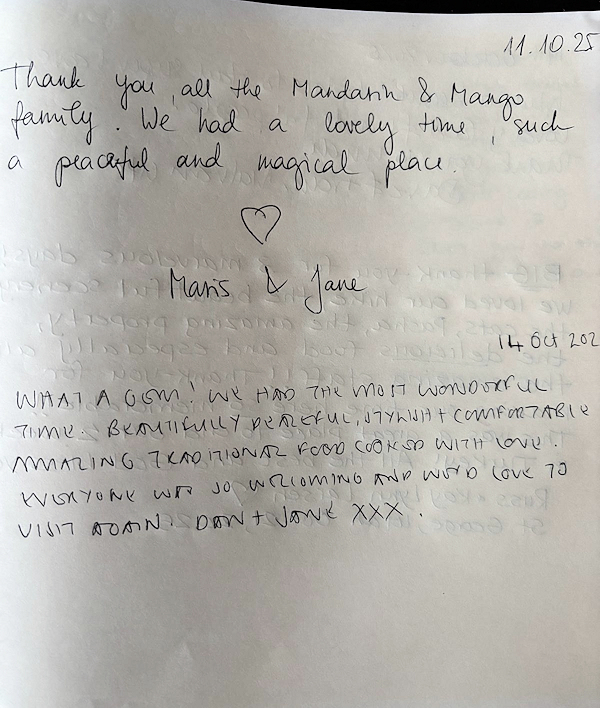 11.10.25
Thank you, all the Mandarin & Mango
family. We had a lovely time, such
a peaceful and magical place.
Maris & Jane
14 Oct 202
WHAT A GEM! WE HAD THE MOST WONDERFUL
TIME. BEAUTIFULLY PEACEFUL, STYLISH + COMFORTABLE
AMAZING TRADITIONAL FOOD COOKED WITH LOVE.
EVERYONE WAS SO WELCOMING AND WOULD LOVE TO
VISIT AGAIN. DAN + JANE XXX.